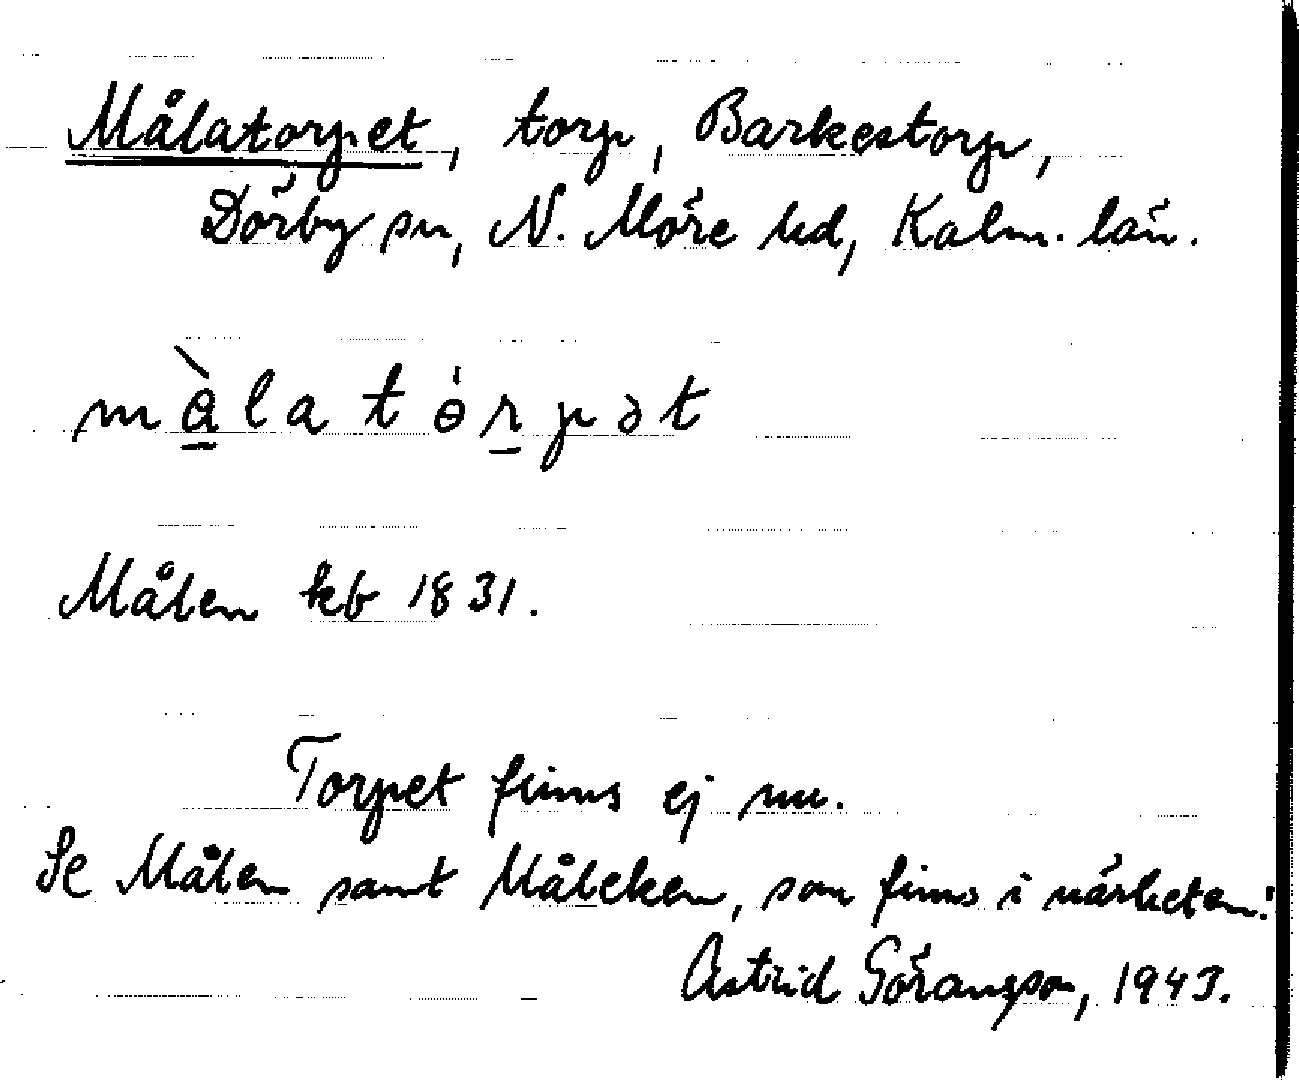 Målatorpet, torp, Barkestorp,
Dörby sn, N. Möre hd, Kalm. län.
màlatȯrpət
Målen kb 1831.
Torpet finns ej nu.
Se Målen samt Måleken, som finns i närheten!
Astrid Göransson, 1943.